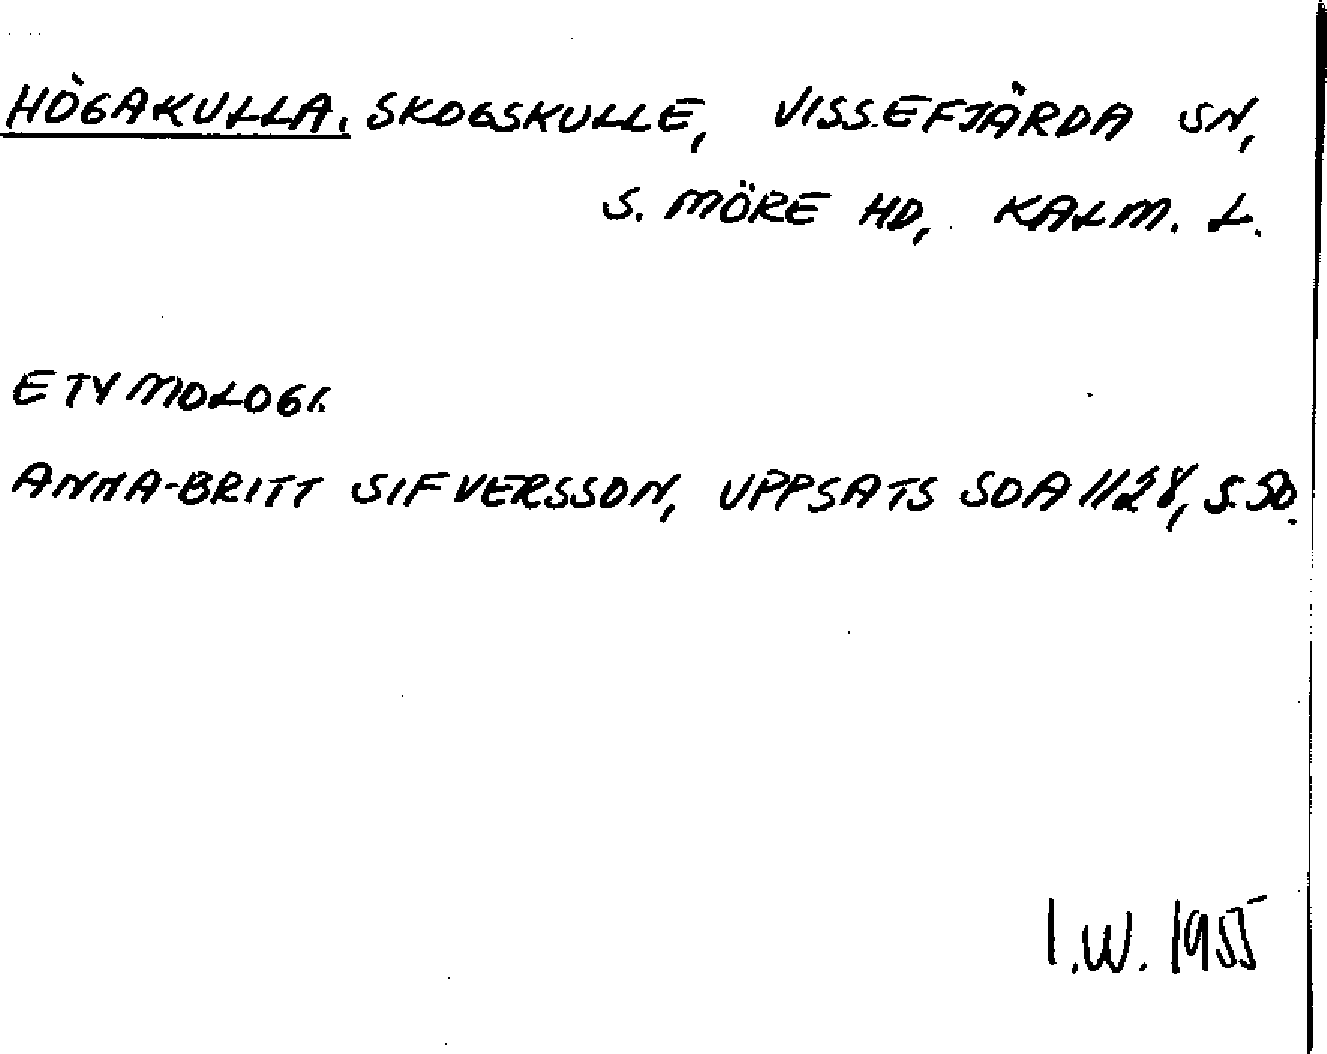 HÖGAKULLA. SKOGSKULLE, VISSEFJÄRDA SN,
S. MÖRE HD, KALM. L.
ETYMOLOGI.
ANNA-BRITT SIFVERSSON, UPPSATS SOA 1128, S. 50.
I.W. 1955